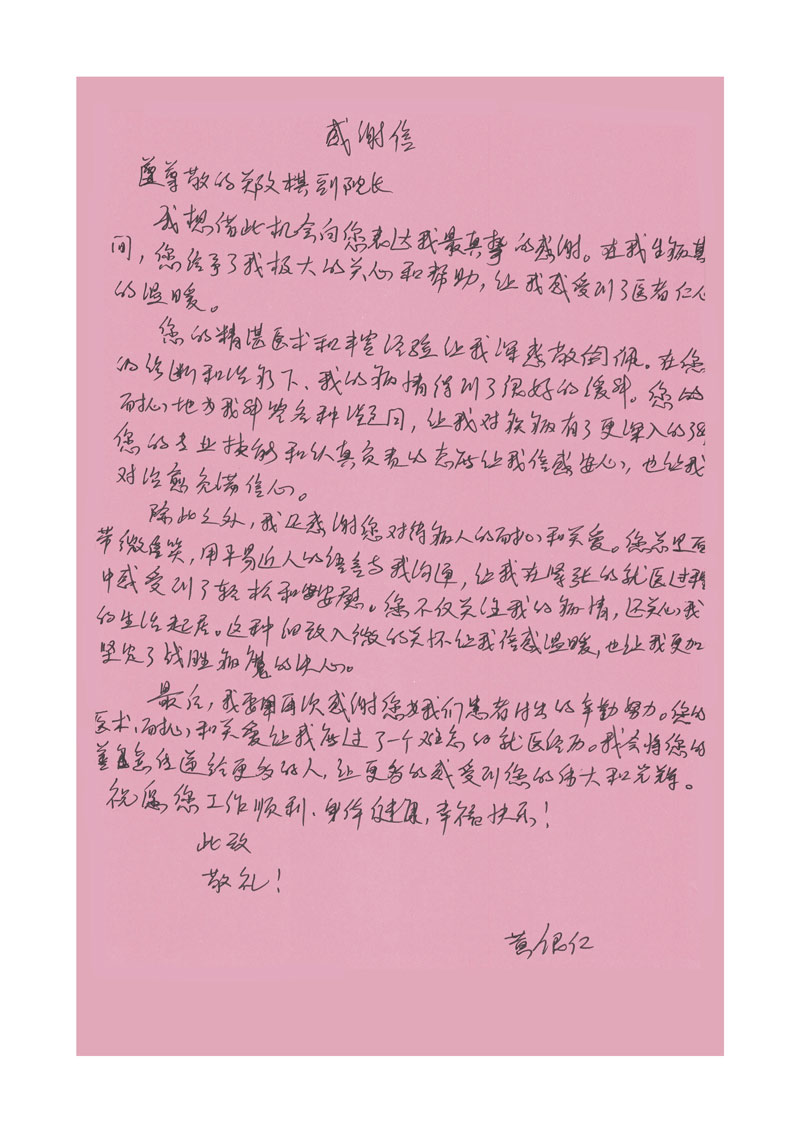 感谢信
尊敬的郑文棋副院长
我想借此机会向您表达我最真挚的感谢。在我生病其
间，您给予了我极大的关心和帮助，让我感受到了医者仁心
的温暖。
您的精湛医术和丰富经验让我深感敬佩。在您
的诊断和治疗下、我的病情得到了很好的缓解。您的
耐心地为我解答各种问，让我对疾病有了更深入的
您的专业技能和认真负责的态度让我倍感安心，也让我
对治愈充满信心。
除此之外，我还感谢您对待病人的耐心和关爱。您总是面
带微笑，用平易近人的语言与我沟通，让我在紧张的就医过程
中感受到了轻松和安慰。您不仅关注我的病情，还关心我
的生活起居。这种细致入微的关怀让我倍感温暖，也让我更加
坚定了战胜病魔的决心。
最后，我要再次感谢您为我们患者付出的辛勤努力。您的
医术、耐心和关爱让我度过了一个难忘的就医经历。我会将您的
善传递给更多的人，让更多的感受到您的伟大和光辉。
祝愿您工作顺利、身体健康，幸福快乐！
此致
敬礼！
黄银仁